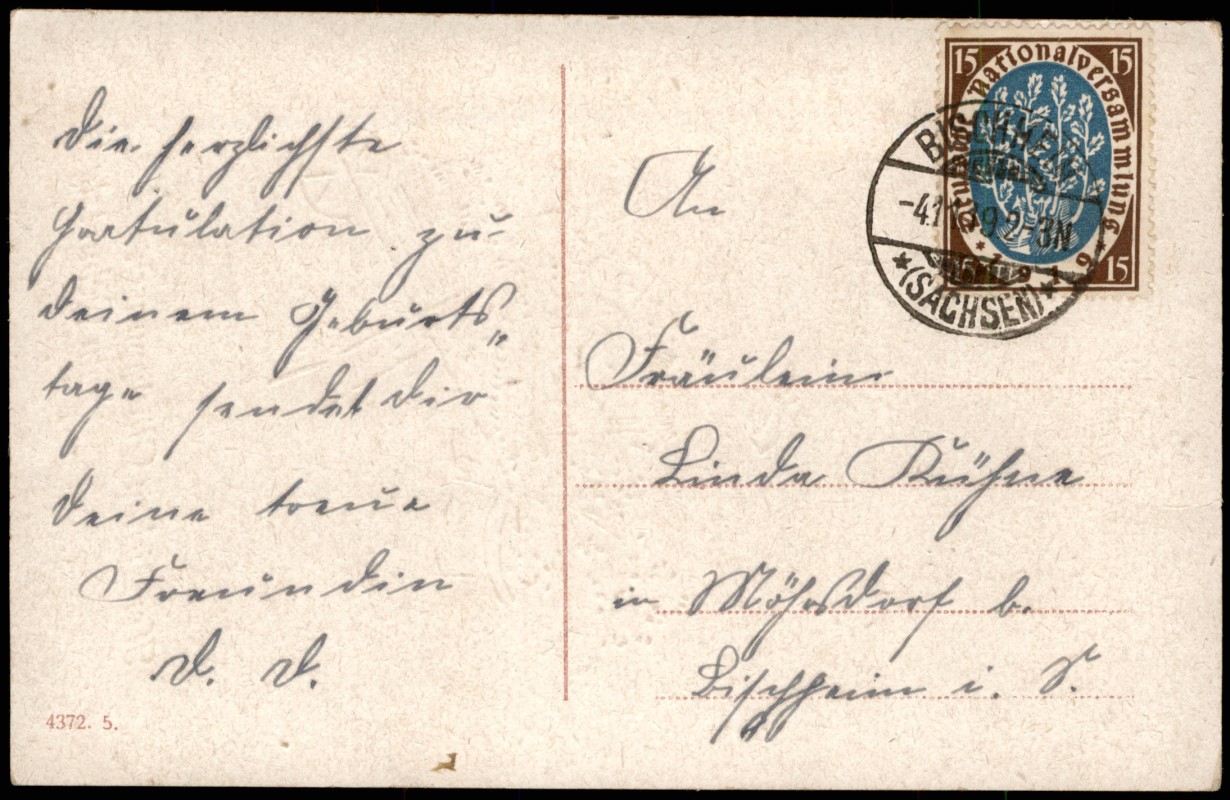 Die herzlichste
Gratulation zu
deinem Geburts„
tage sendet dir
deine treue
Freundin
D. D.
4372. 5.
15 15
Deutsche Nationalversammlung
* 1919 *
15 15
-4.11.19 2-3N
* (SACHSEN) *
An
Fräulein
Linda Kühne
in Möhrsdorf b.
Bischheim i. S.